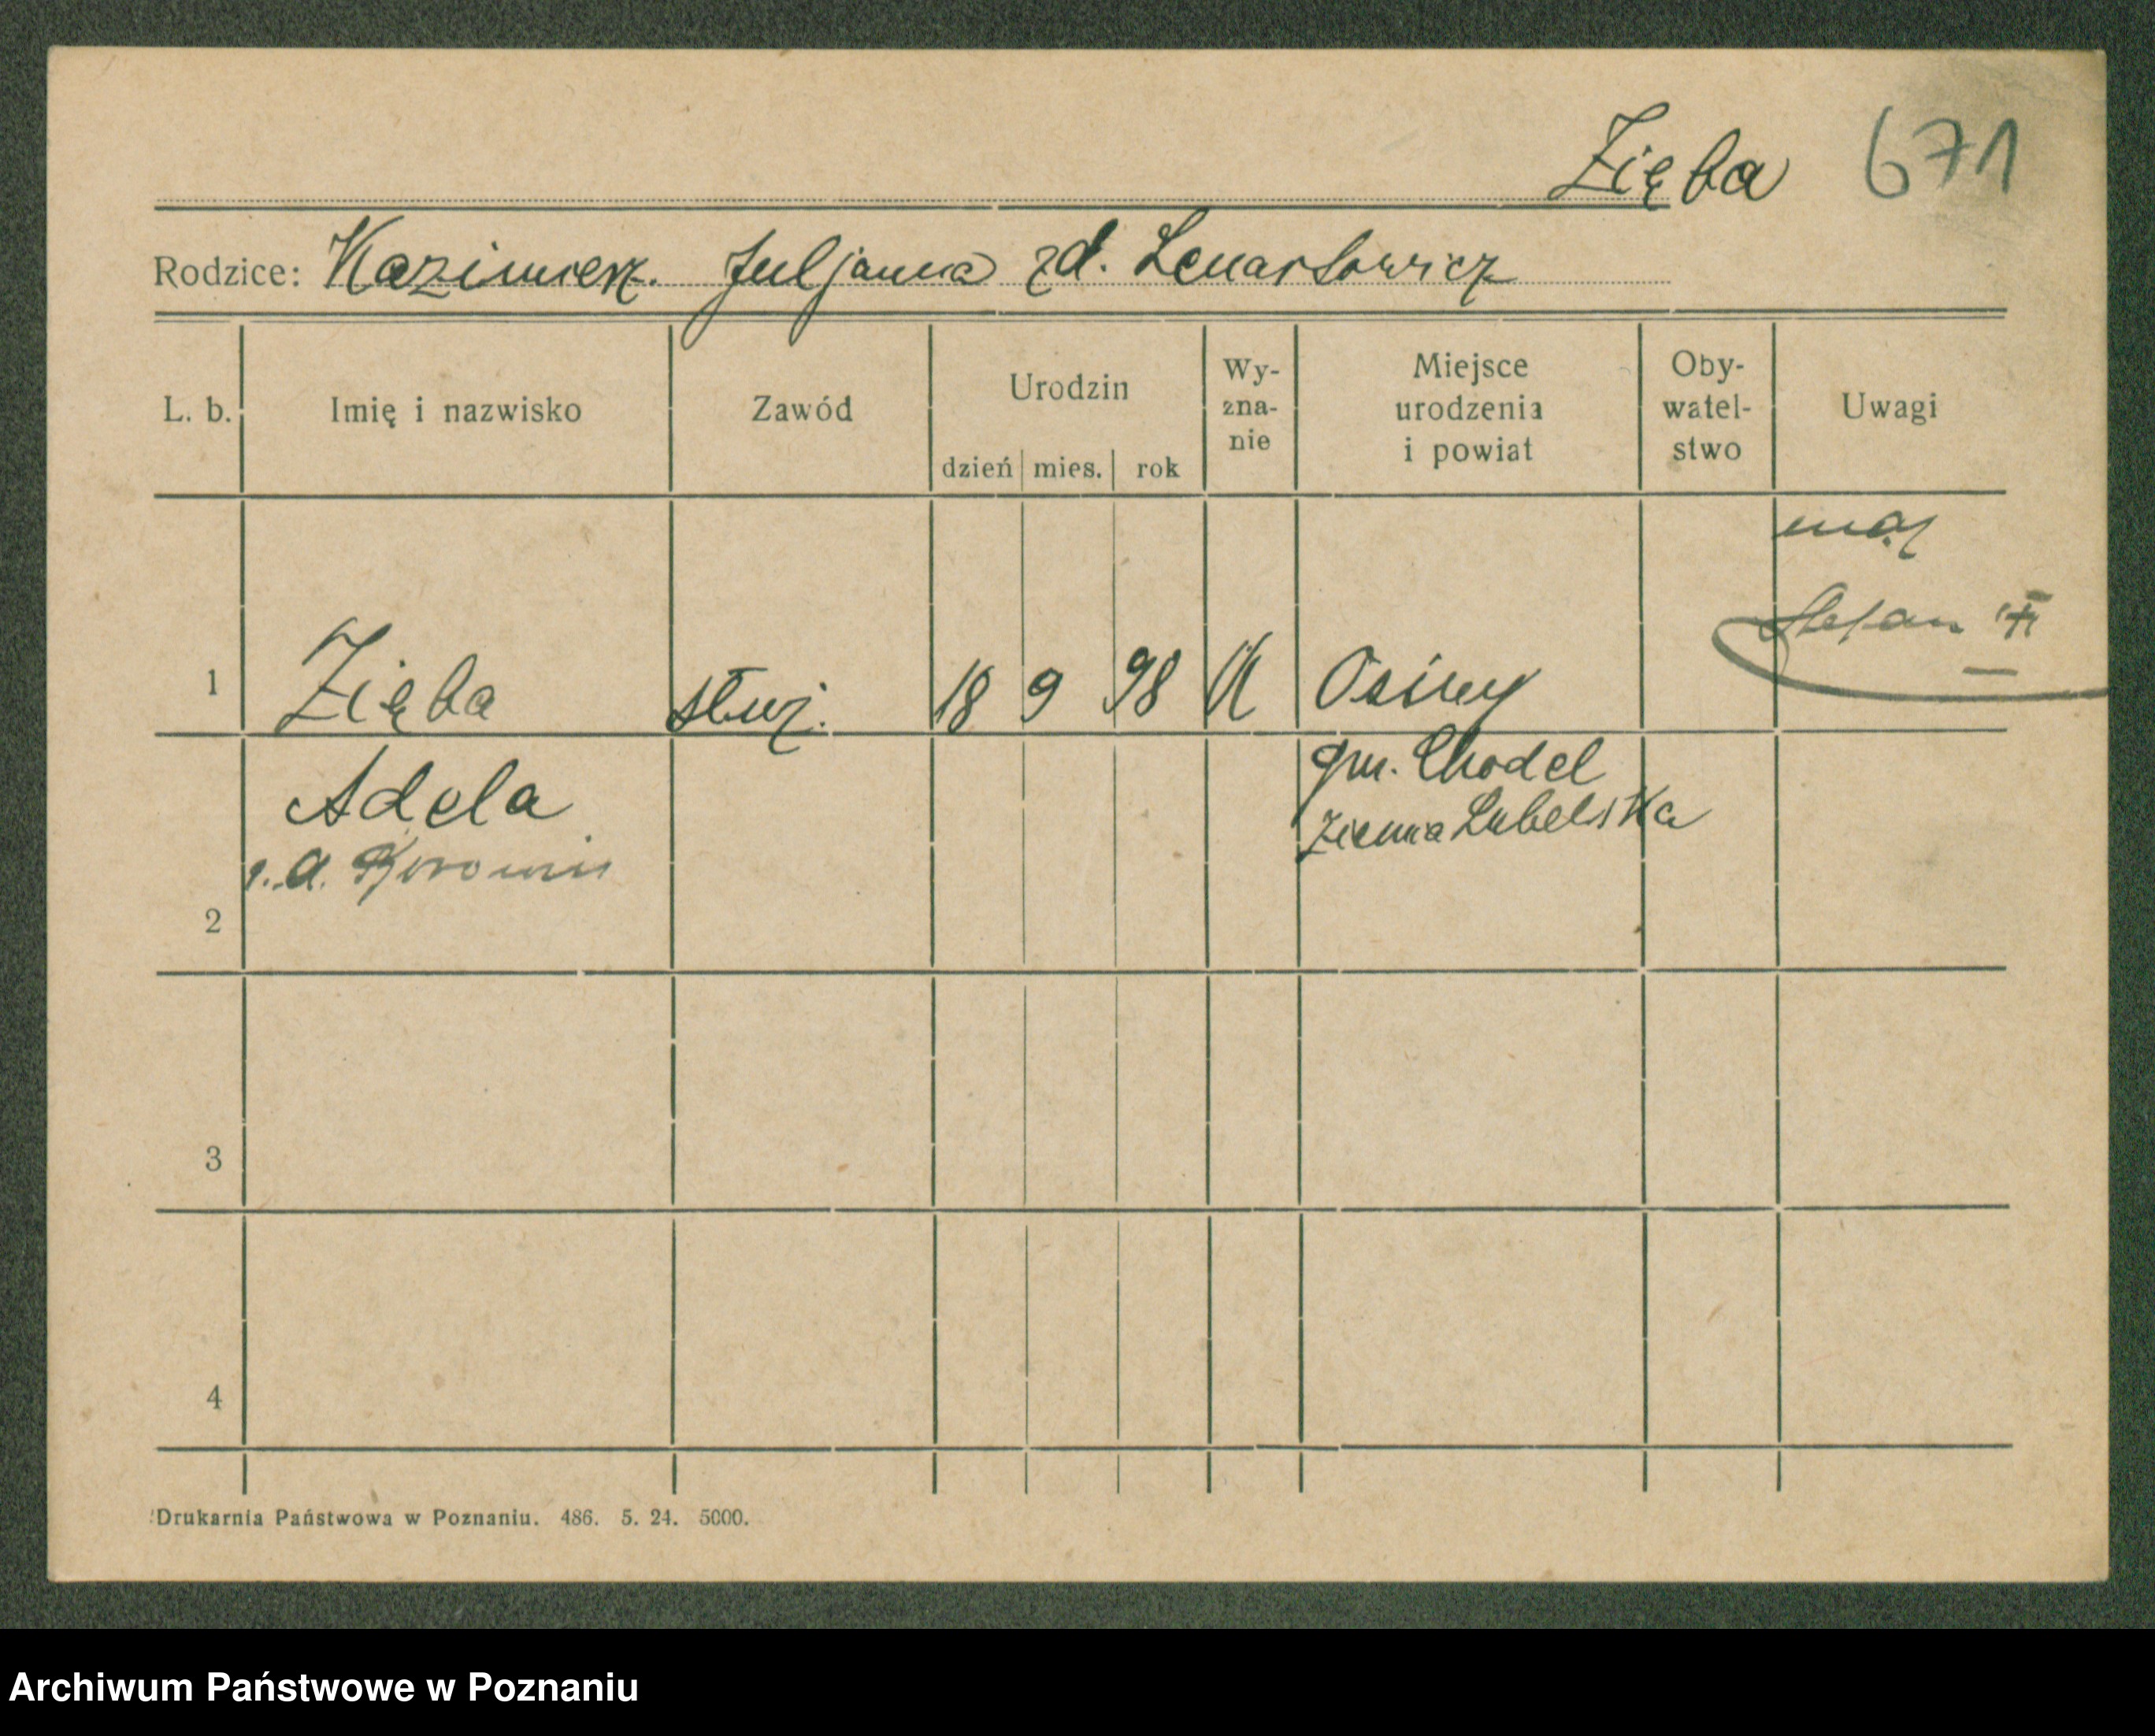 Zięba 671
Rodzice: Kazimierz. Juljanna zd. Lenartowicz
L. b. Imię i nazwisko Zawód Urodzin dzień mies. rok Wy-zna-nie Miejsce urodzenia i powiat Oby-watel-stwo Uwagi
mąż
Stefan
1 Zięba służ. 18 9 98 K Osiny
Adela gm. Chodel
Ziemia Lubelska
2
3
4
Drukarnia Państwowa w Poznaniu. 486. 5. 24. 5000.
Archiwum Państwowe w Poznaniu